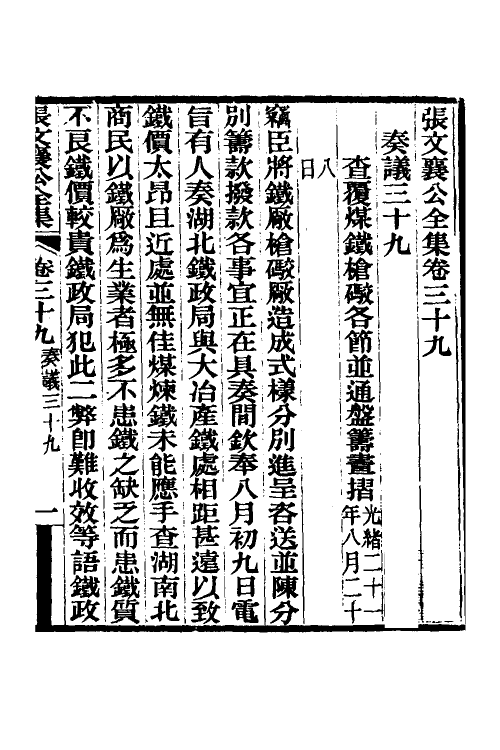 張文襄公全集卷三十九
奏議三十九
查覆煤鐵槍礮各節並通盤籌畫摺光緒二十一年八月二十八日
竊臣將鐵厰槍礮厰造成式樣分別進呈咨送並陳分
別籌款撥款各事宜正在具奏間欽奉八月初九日電
旨有人奏湖北鐵政局與大冶產鐵處相距甚遠以致
鐵價太昂且近處並無佳煤煉鐵未能應手查湖南北
商民以鐵厰爲生業者極多不患鐵之缺乏而患鐵質
不良鐵價較貴鐵政局犯此二弊卽難收效等語鐵政
張文襄公全集 卷三十九 奏議三十九 一